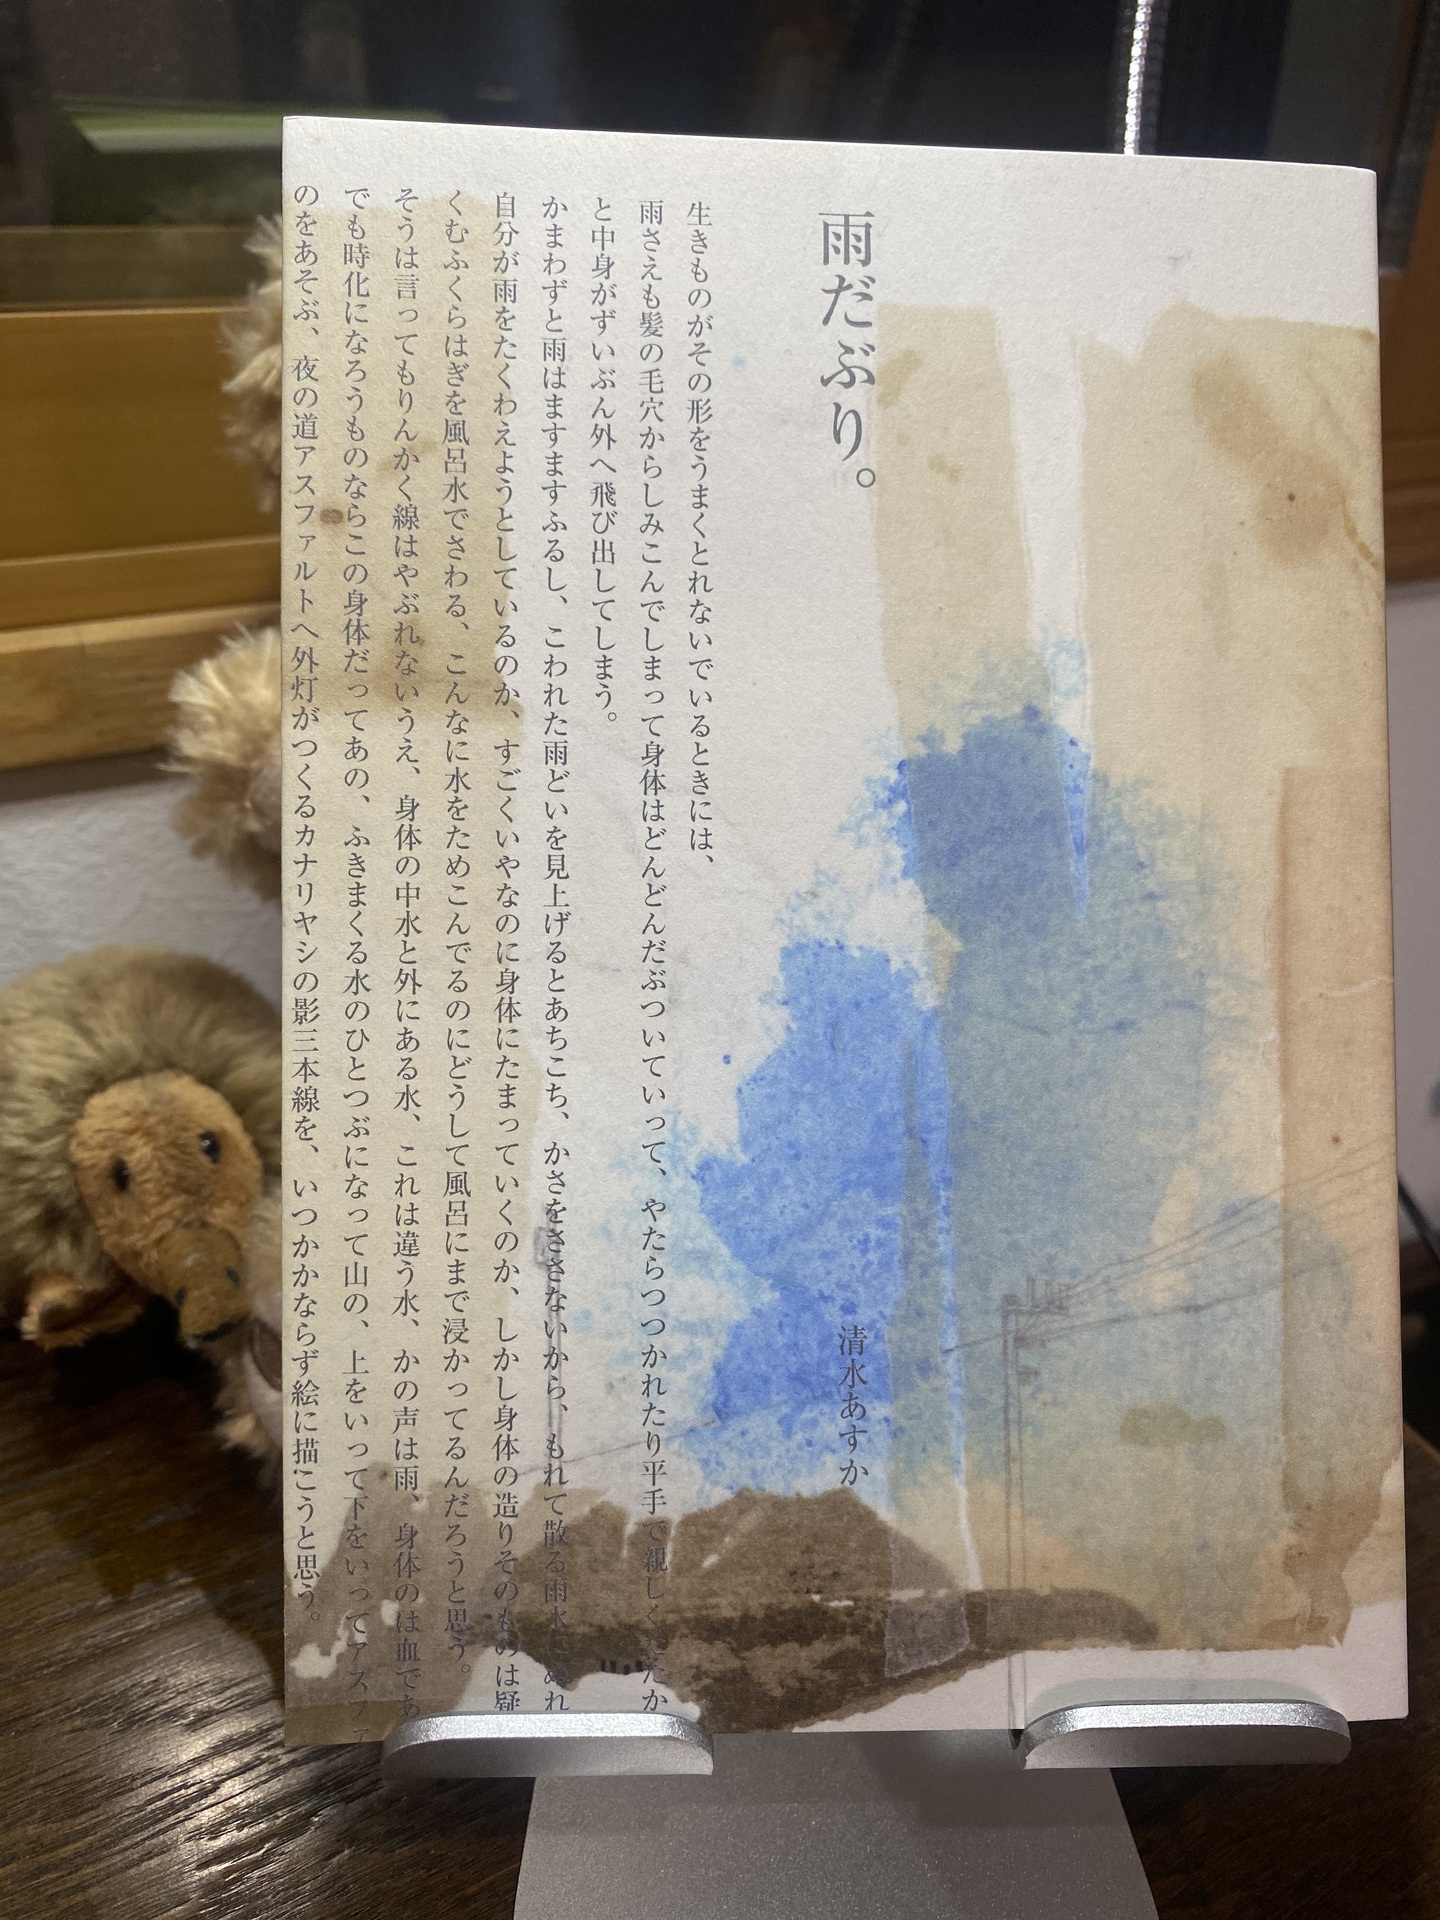 雨だぶり。
清水あすか
生きものがその形をうまくとれないでいるときには、
雨さえも髪の毛穴からしみこんでしまって身体はどんどんだぶついていって、やたらつつかれたり平手で親しく たか
と中身がずいぶん外へ飛び出してしまう。
かまわずと雨はますますふるし、こわれた雨どいを見上げるとあちこち、かさをささないから、もれて散る雨水 ぬれ
自分が雨をたくわえようとしているのか、すごくいやなのに身体にたまっていくのか、しかし身体の造りそのものは疑
くむふくらはぎを風呂水でさわる、こんなに水をためこんでるのにどうして風呂にまで浸かってるんだろうと思う。
そうは言ってもりんかく線はやぶれないうえ、身体の中水と外にある水、これは違う水、かの声は雨、身体のは血であ
でも時化になろうものならこの身体だってあの、ふきまくる水のひとつぶになって山の、上をいって下をいってアスファ
のをあそぶ、夜の道アスファルトへ外灯がつくるカナリヤシの影三本線を、いつかかならず絵に描こうと思う。